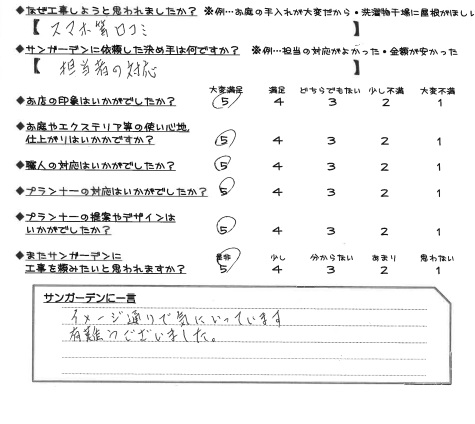 ◆なぜ工事しようと思われましたか？ ※例…お庭の手入れが大変だから・洗濯物干場に屋根がほしい
【 スマホ等口コミ 】
◆サンガーデンに依頼した決め手は何ですか？ ※例…担当の対応がよかった・金額が安かった
【 担当者の対応 】
大変満足 満足 どちらでもない 少し不満 大変不満
◆お店の印象はいかがでしたか？ 5 4 3 2 1
◆お庭やエクステリア等の使い心地、
仕上がりはいかがですか？ 5 4 3 2 1
◆職人の対応はいかがでしたか？ 5 4 3 2 1
◆プランナーの対応はいかがでしたか？ 5 4 3 2 1
◆プランナーの提案やデザインは
いかがでしたか？ 5 4 3 2 1
◆またサンガーデンに 是非 少し 分からない あまり 思わない
工事を頼みたいと思われますか？ 5 4 3 2 1
サンガーデンに一言
イメージ通りで気にいっています
有難うございました。